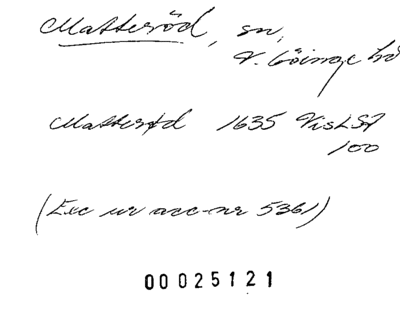 Matteröd, sn,
V. Göinge hd
Matterød 1635 VisLSA
100
(Exc ur acc-nr 5361)
00025121